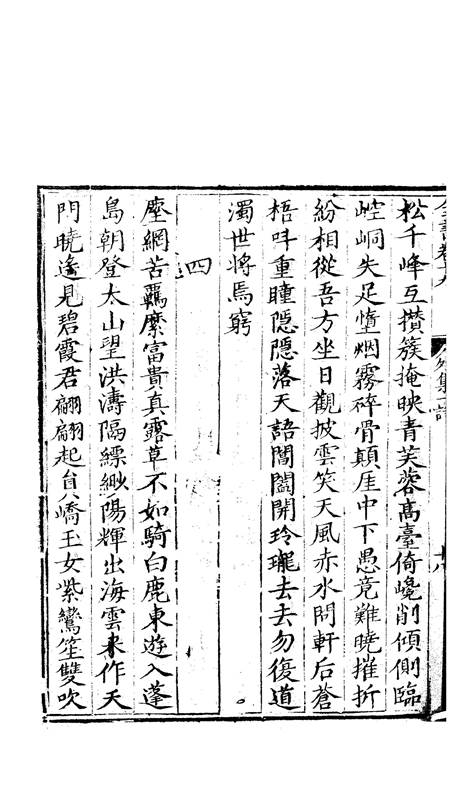 松千峰互攅簇掩映青芙蓉髙臺倚巉削傾側臨
崆峒失足墮烟霧碎骨顛厓中下愚竟難曉摧折
紛相從吾方坐日觀披雲笑天風赤水問軒后蒼
梧呌重瞳隠隠落天語閶闔開玲瓏去去勿復道
濁世將焉窮
四
塵網苦羈縻富貴真露草不如騎白鹿東遊入蓬
島朝登太山望洪濤隔縹緲陽輝出海雲来作天
門曉遙見碧霞君翩翩起員嶠玉女紫鸞笙雙吹